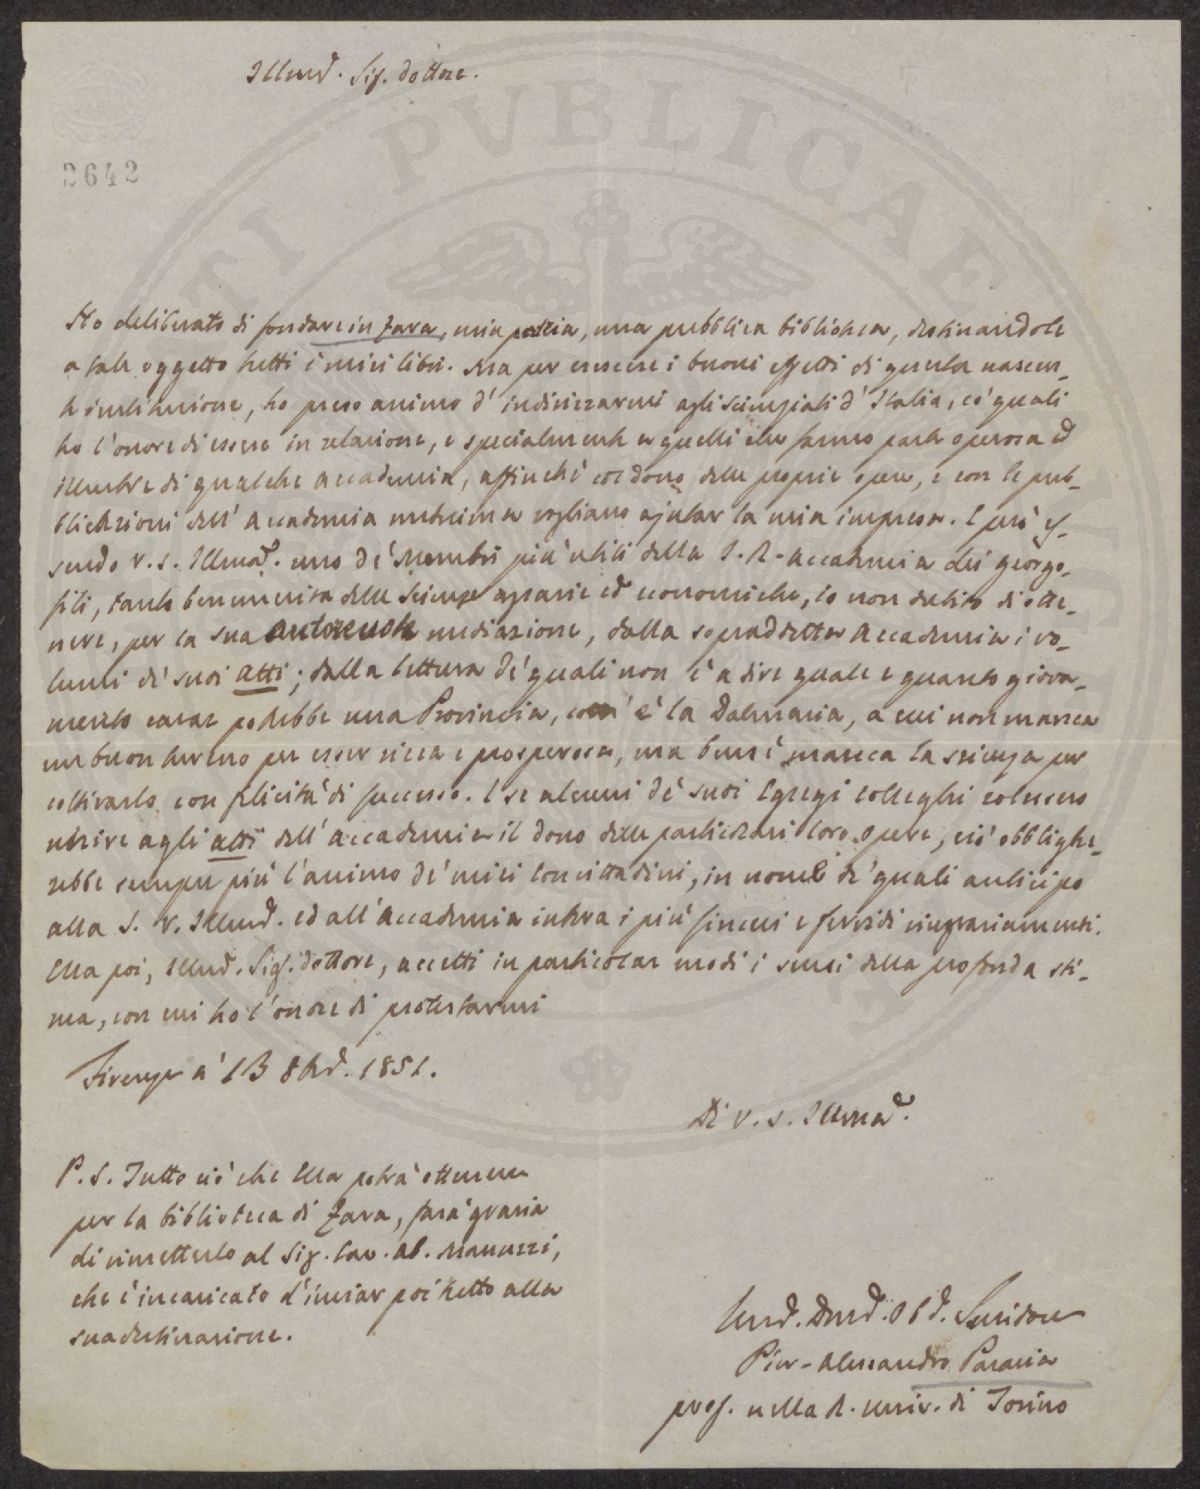 Illmo. Sig. dottore.
2642
Ho deliberato di fondare in Zara, mia patria, una pubblica biblioteca, destinandole
a tale oggetto tutti i miei libri. Ma per crescere i buoni effetti di questa nascen-
te instituzione, ho preso animo d'indirizzarmi agli scienziati d'Italia, co' quali
ho l'onore di essere in relazione, e specialmente a quelli che fanno parte operosa ed
illustre di qualche accademia, affinchè col dono delle proprie opere, e con le pub-
blicazioni dell'Accademia medesima vogliano ajutar la mia impresa. E però es-
sendo V. S. Illma. uno de' Membri più utili della I. R. Accademia dei georgo-
fili, tanto benemerita delle scienze agrarie ed economiche, io non dubito di otte-
nere, per la sua autorevole mediazione, dalla sopraddetta Accademia i vo-
lumi de' suoi Atti; dalla lettura de' quali non è a dire quale e quanto giova-
mento cavar potrebbe una Provincia, com' è la Dalmazia, a cui non manca
un buon terreno per esser ricca e prosperosa, ma bensì manca la scienza per
coltivarlo con felicità di successo. E se alcuni de' suoi Egregi colleghi volessero
unire agli atti dell'accademia il dono delle particolari loro opere, ciò obblighe-
rebbe sempre più l'animo de' miei concittadini, in nome de' quali anticipo
alla S. V. Illma. ed all'Accademia intera i più sinceri e fervidi ringraziamenti.
Ella poi, Illmo. Sig. dottore, accetti in particolar modo i sensi della profonda sti-
ma, con cui ho l'onore di protestarmi
Firenze a' 13 8bre. 1851.
Di V. S. Illma.
P. S. Tutto ciò che Ella potrà ottenere
per la biblioteca di Zara, farà grazia
di rimetterlo al Sig. Cav. Ab. Manuzzi,
che è incaricato d'inviar poi tutto alla
sua destinazione.
Umo. Dmo. Obo. Servidore
Pier-Alessandro Paravia
prof. nella R. Univ. di Torino